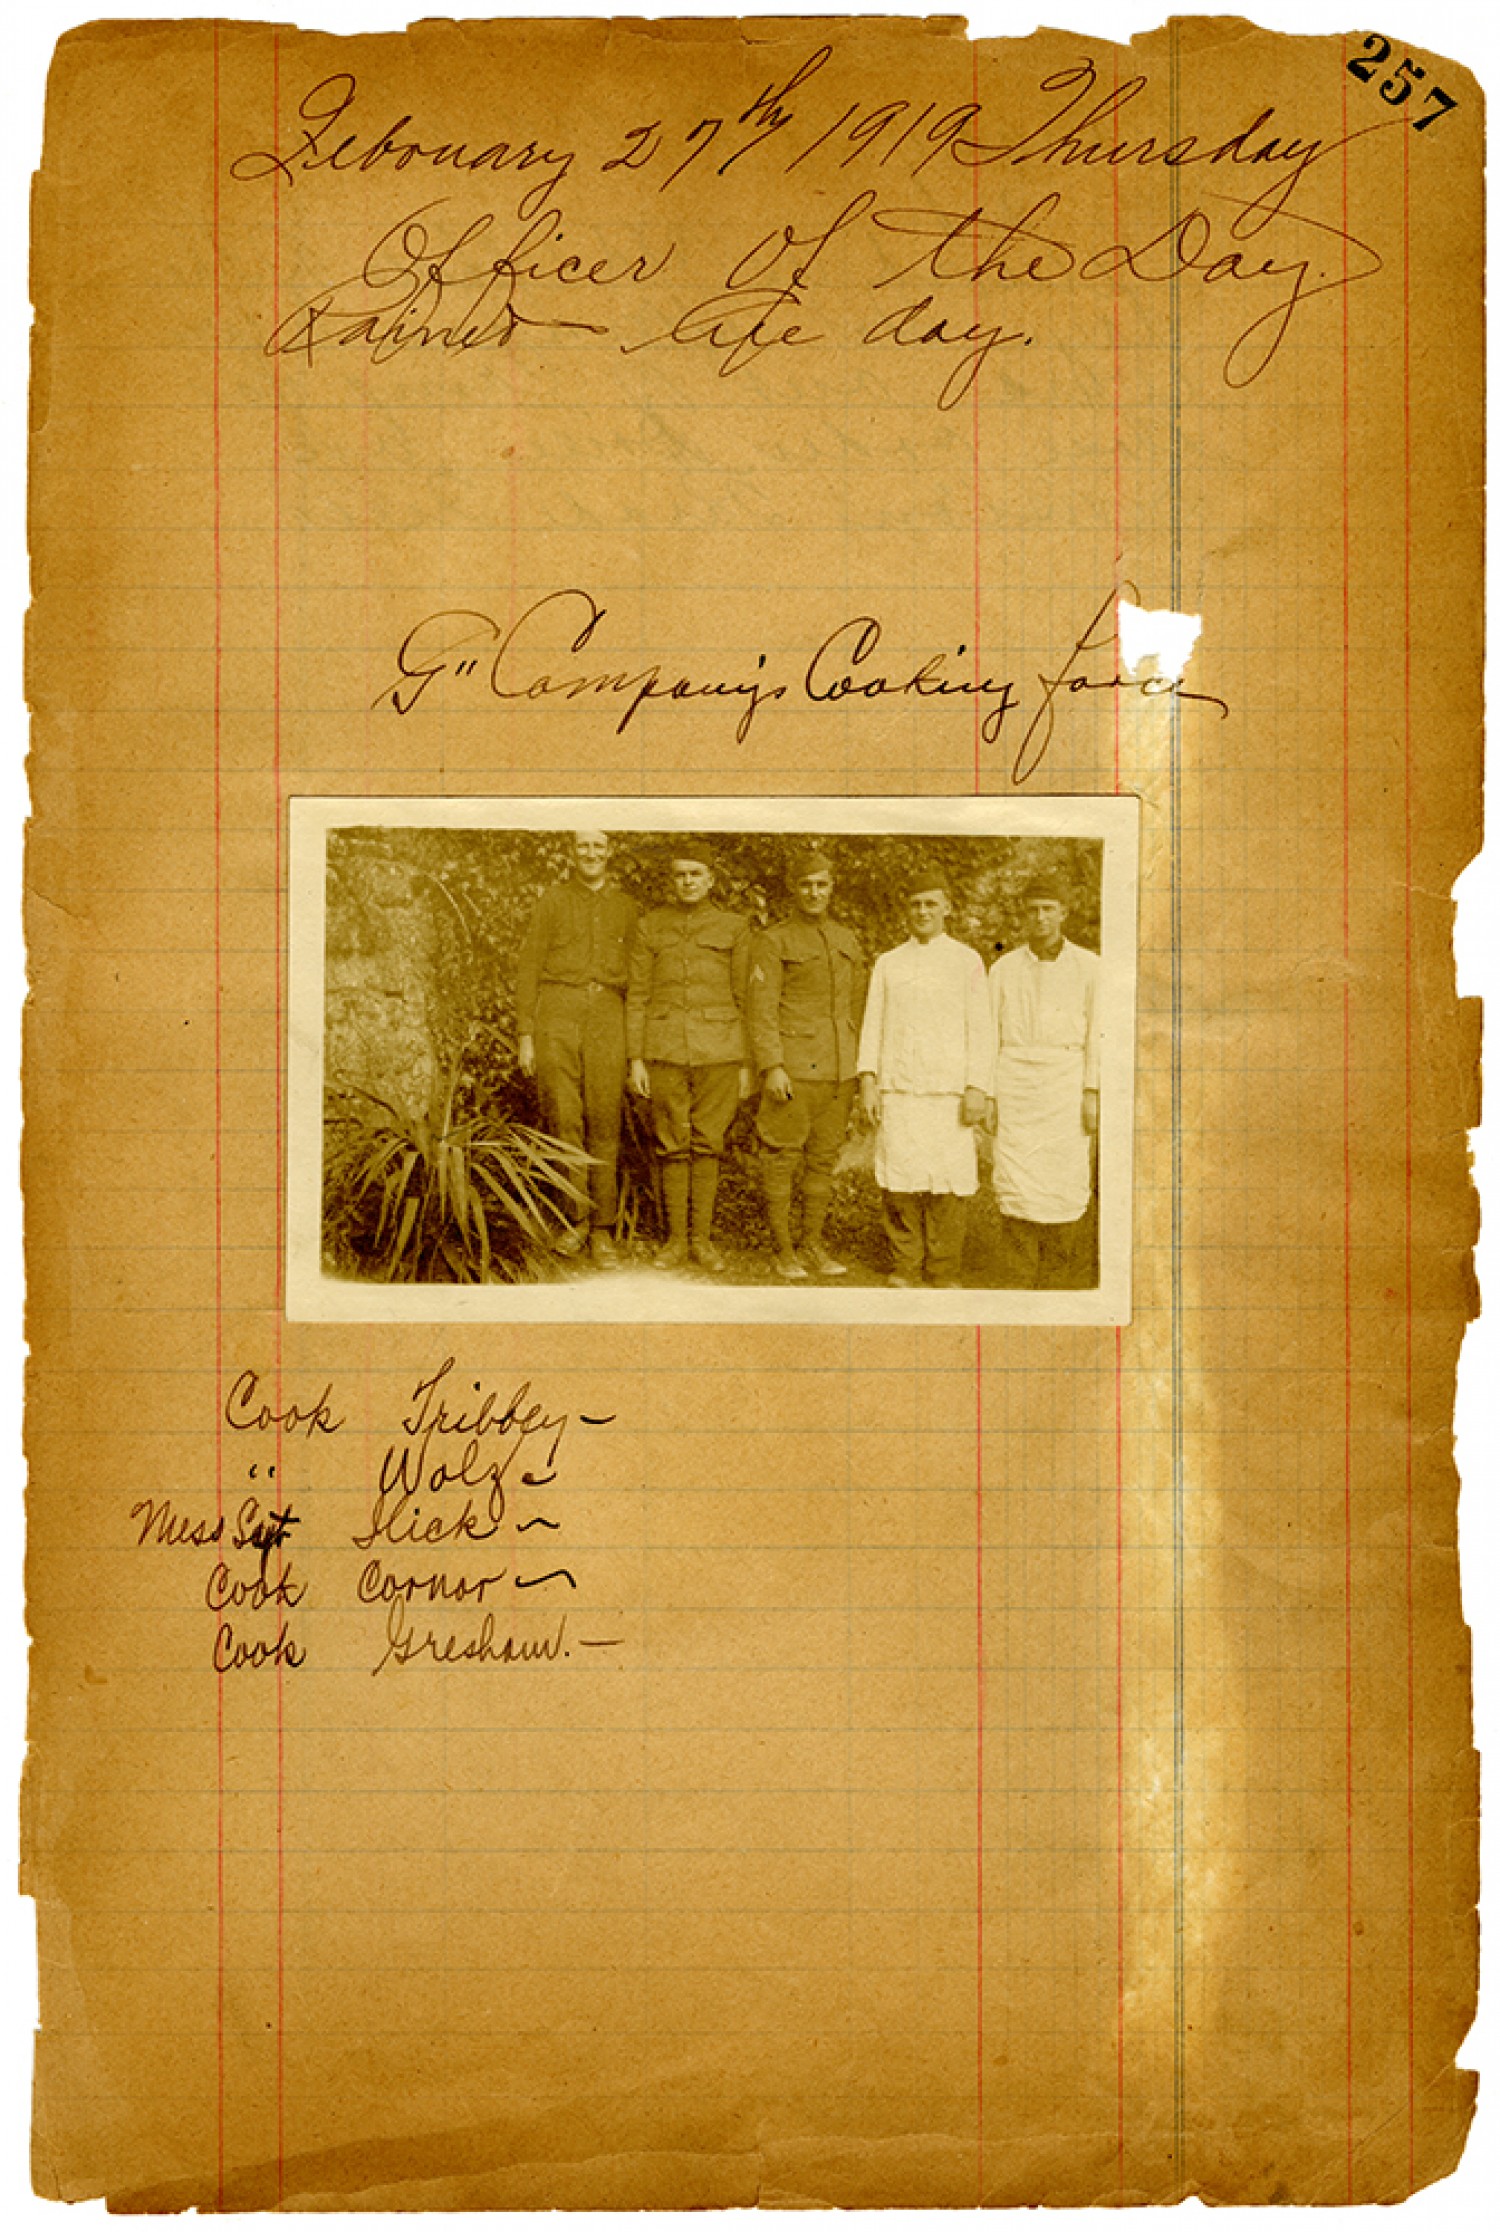 257
February 27th 1919 Thursday
Officer of the Day.
Rained all day.
G" Company's Cooking force
Cook Tribbey -
" Wolz -
Mess Sgt Hick -
Cook Cornor -
Cook Gresham. -